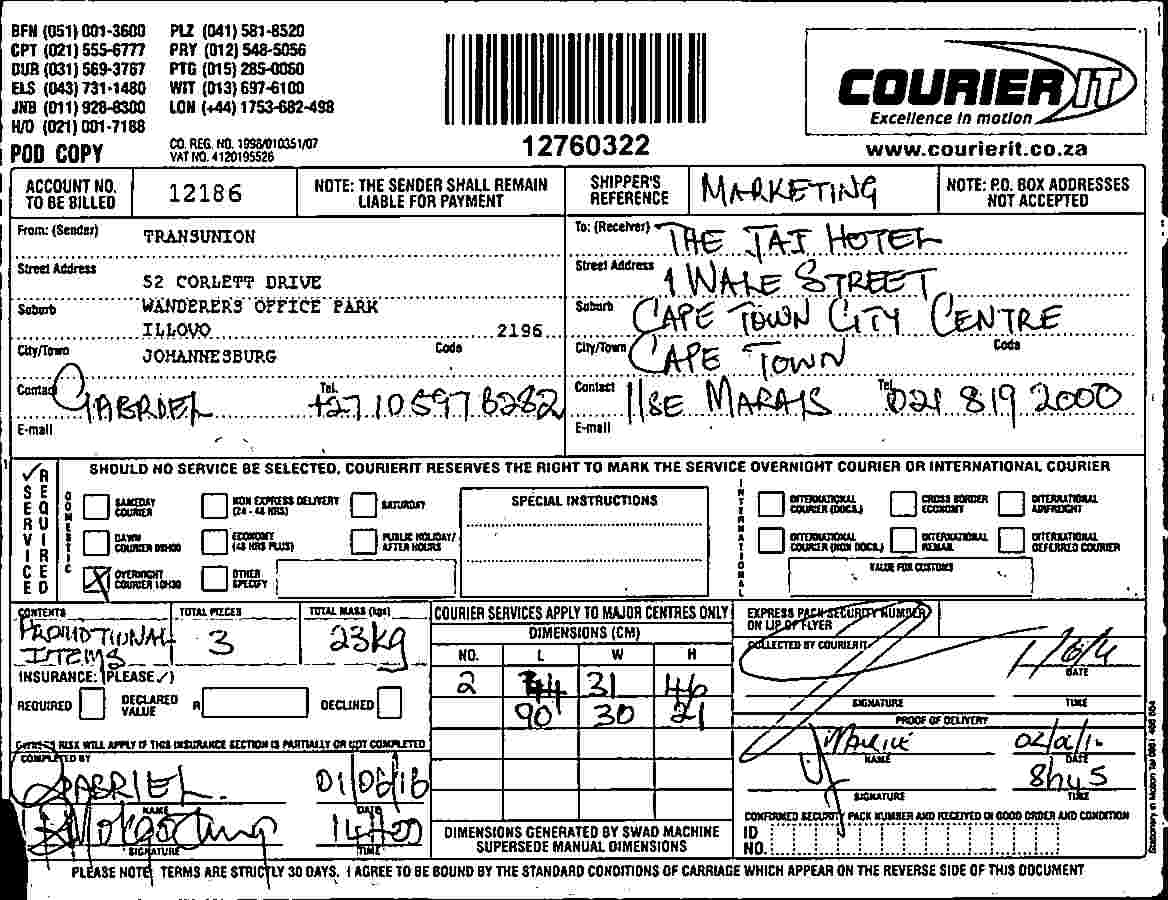 BFN (051) 001-3600 PLZ (041) 581-8520
CPT (021) 555-6777 PRY (012) 548-5056
DUR (031) 569-3767 PTG (015) 285-0060
ELS (043) 731-1480 WIT (013) 697-6100
JNB (011) 928-8300 LON (+44) 1753-682-498
H/O (021) 001-7188
POD COPY
CO. REG. NO. 1998/010351/07
VAT NO. 4120195526
12760322
COURIER IT
Excellence in motion
www.courierit.co.za
ACCOUNT NO. TO BE BILLED 12186
NOTE: THE SENDER SHALL REMAIN LIABLE FOR PAYMENT
SHIPPER'S REFERENCE MARKETING
NOTE: P.O. BOX ADDRESSES NOT ACCEPTED
From: (Sender) TRANSUNION
Street Address 52 CORLETT DRIVE
Suburb WANDERERS OFFICE PARK
ILLOVO 2196
City/Town JOHANNESBURG Code
Contact GABRIEL Tel. +27 10 597 8282
E-mail
To: (Receiver) THE TAJ HOTEL
Street Address 1 WALE STREET
Suburb CAPE TOWN CITY CENTRE
City/Town CAPE TOWN Code
Contact ILSE MARAIS Tel. 021 819 2000
E-mail
SERVICE REQUIRED
SHOULD NO SERVICE BE SELECTED, COURIERIT RESERVES THE RIGHT TO MARK THE SERVICE OVERNIGHT COURIER OR INTERNATIONAL COURIER
DOMESTIC
SAMEDAY COURIER
NON EXPRESS DELIVERY (24 - 48 HRS)
SATURDAY
DAWN COURIER 09H00
ECONOMY (48 HRS PLUS)
PUBLIC HOLIDAY/ AFTER HOURS
OVERNIGHT COURIER 10H30
OTHER SPECIFY
SPECIAL INSTRUCTIONS
INTERNATIONAL
INTERNATIONAL COURIER (DOCS.)
CROSS BORDER ECONOMY
INTERNATIONAL AIRFREIGHT
INTERNATIONAL COURIER (NON DOCS.)
INTERNATIONAL REMAIL
INTERNATIONAL DEFERRED COURIER
VALUE FOR CUSTOMS
CONTENTS PROMOTIONAL ITEMS
TOTAL PIECES 3
TOTAL MASS (kgs) 23kg
INSURANCE: (PLEASE ✓)
REQUIRED DECLARED VALUE R DECLINED
OWNERS RISK WILL APPLY IF THIS INSURANCE SECTION IS PARTIALLY OR NOT COMPLETED
COMPLETED BY
GABRIEL. 01/06/16
NAME DATE
SIGNATURE TIME
COURIER SERVICES APPLY TO MAJOR CENTRES ONLY
DIMENSIONS (CM)
NO. L W H
2 44 31 46
90 30 21
DIMENSIONS GENERATED BY SWAD MACHINE SUPERSEDE MANUAL DIMENSIONS
EXPRESS PACK SECURITY NUMBER ON LIP OF FLYER
COLLECTED BY COURIERIT:
DATE
SIGNATURE TIME
PROOF OF DELIVERY
NAME DATE
8h45
SIGNATURE TIME
CONFIRMED SECURITY PACK NUMBER AND RECEIVED IN GOOD ORDER AND CONDITION
ID NO.
PLEASE NOTE: TERMS ARE STRICTLY 30 DAYS. I AGREE TO BE BOUND BY THE STANDARD CONDITIONS OF CARRIAGE WHICH APPEAR ON THE REVERSE SIDE OF THIS DOCUMENT